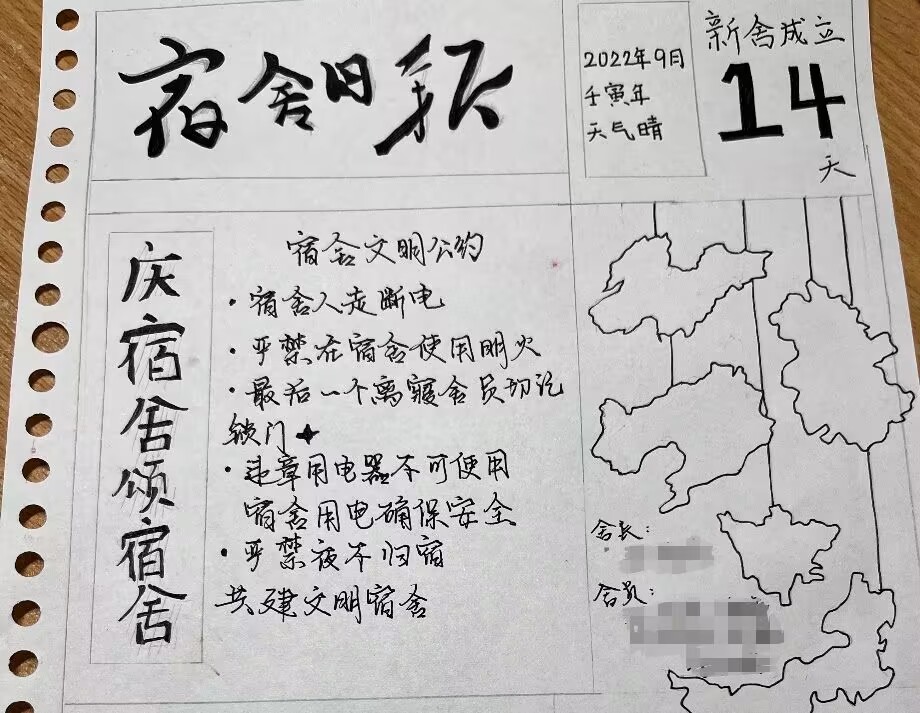 宿舍日报
2022年9月
壬寅年
天气晴
新舍成立
14
天
庆宿舍颂宿舍
宿舍文明公约
·宿舍人走断电
·严禁在宿舍使用明火
·最后一个离寝舍员切记
锁门
·违章用电器不可使用
宿舍用电确保安全
·严禁夜不归宿
共建文明宿舍
舍长:
舍员: